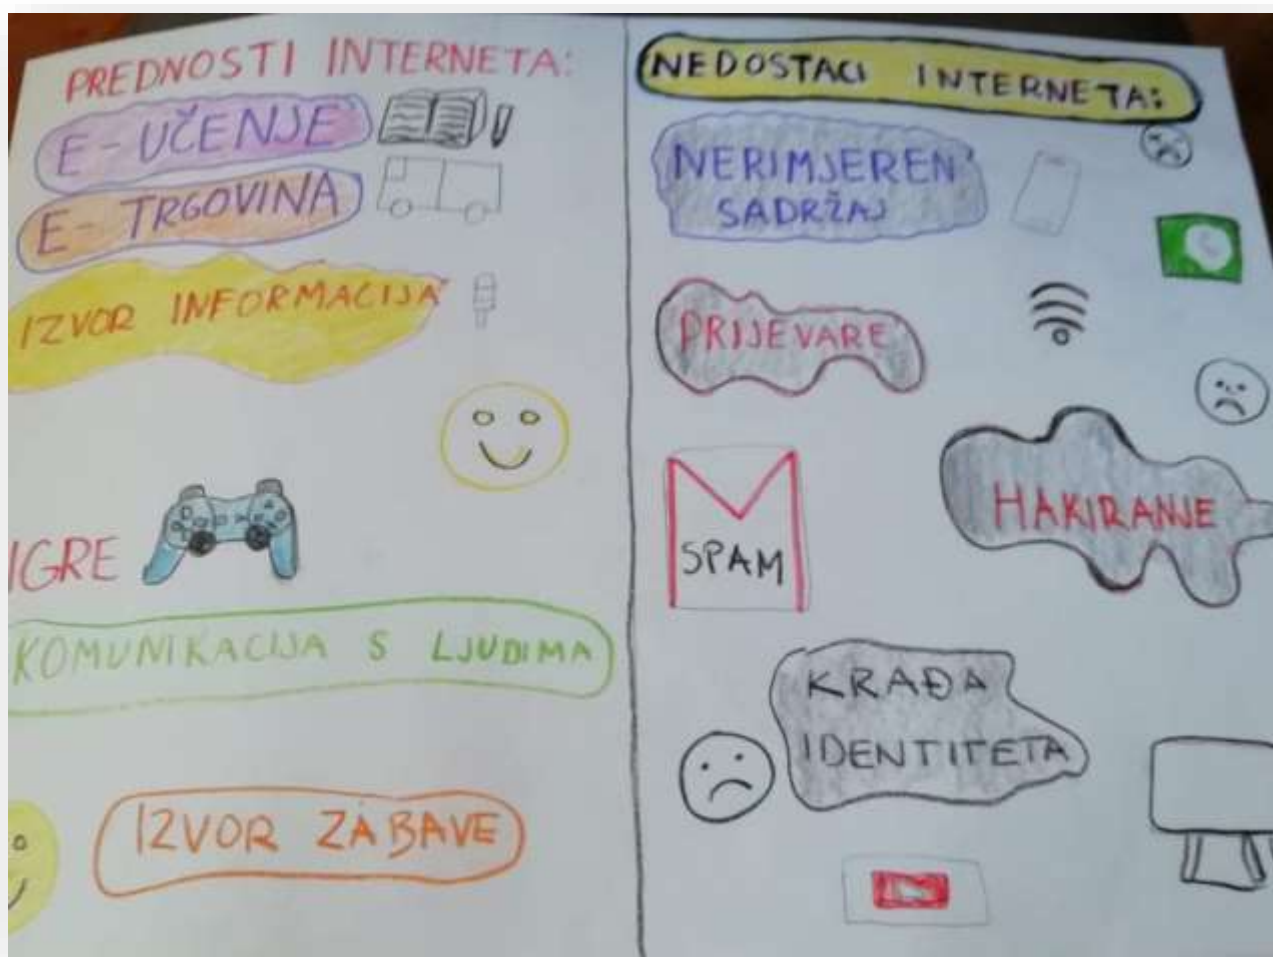 PREDNOSTI INTERNETA:
E-UČENJE
E-TRGOVINA
IZVOR INFORMACIJA
IGRE
KOMUNIKACIJA S LJUDIMA
IZVOR ZABAVE
NEDOSTACI INTERNETA:
NERIMJEREN
SADRŽAJ
PRIJEVARE
HAKIRANJE
SPAM
KRAĐA
IDENTITETA